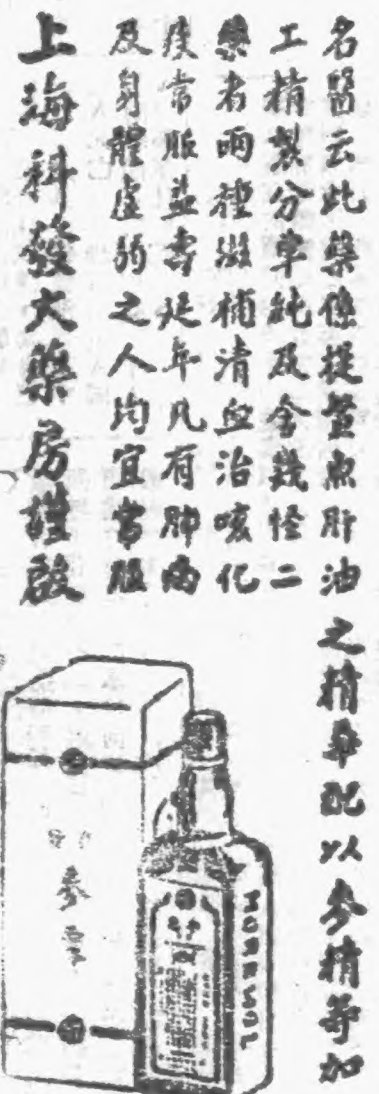 名醫云此藥係提鰵魚肝油之精華配以參精等加
工精製分單純及含幾怪二
藥者兩種滋補清血治咳化
痰常服益壽延年凡有肺病
及身體虛弱之人均宜常服
上海科發大藥房謹啟
參
MORRHUOL